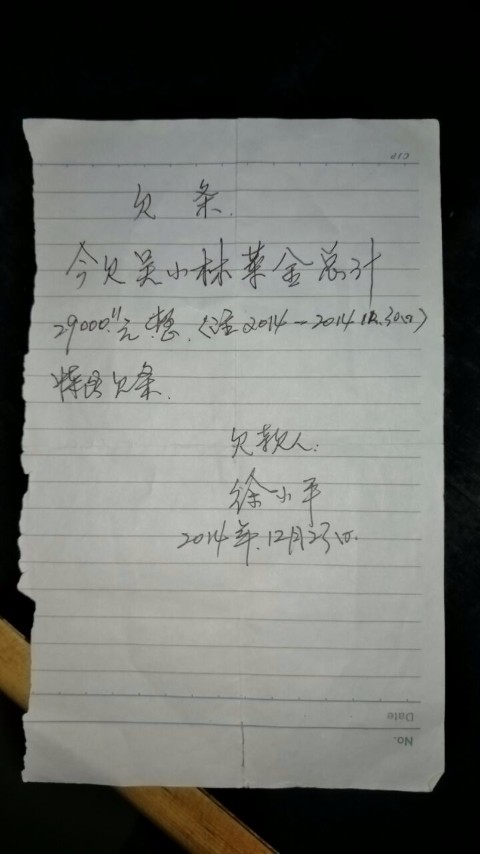 C1P
欠 条.
今欠吴小林菜金总计
29000.元整.(注2014—2014.12.30日)
特留欠条.
欠款人:
徐小平
2014年.12月23日.
Date
No.